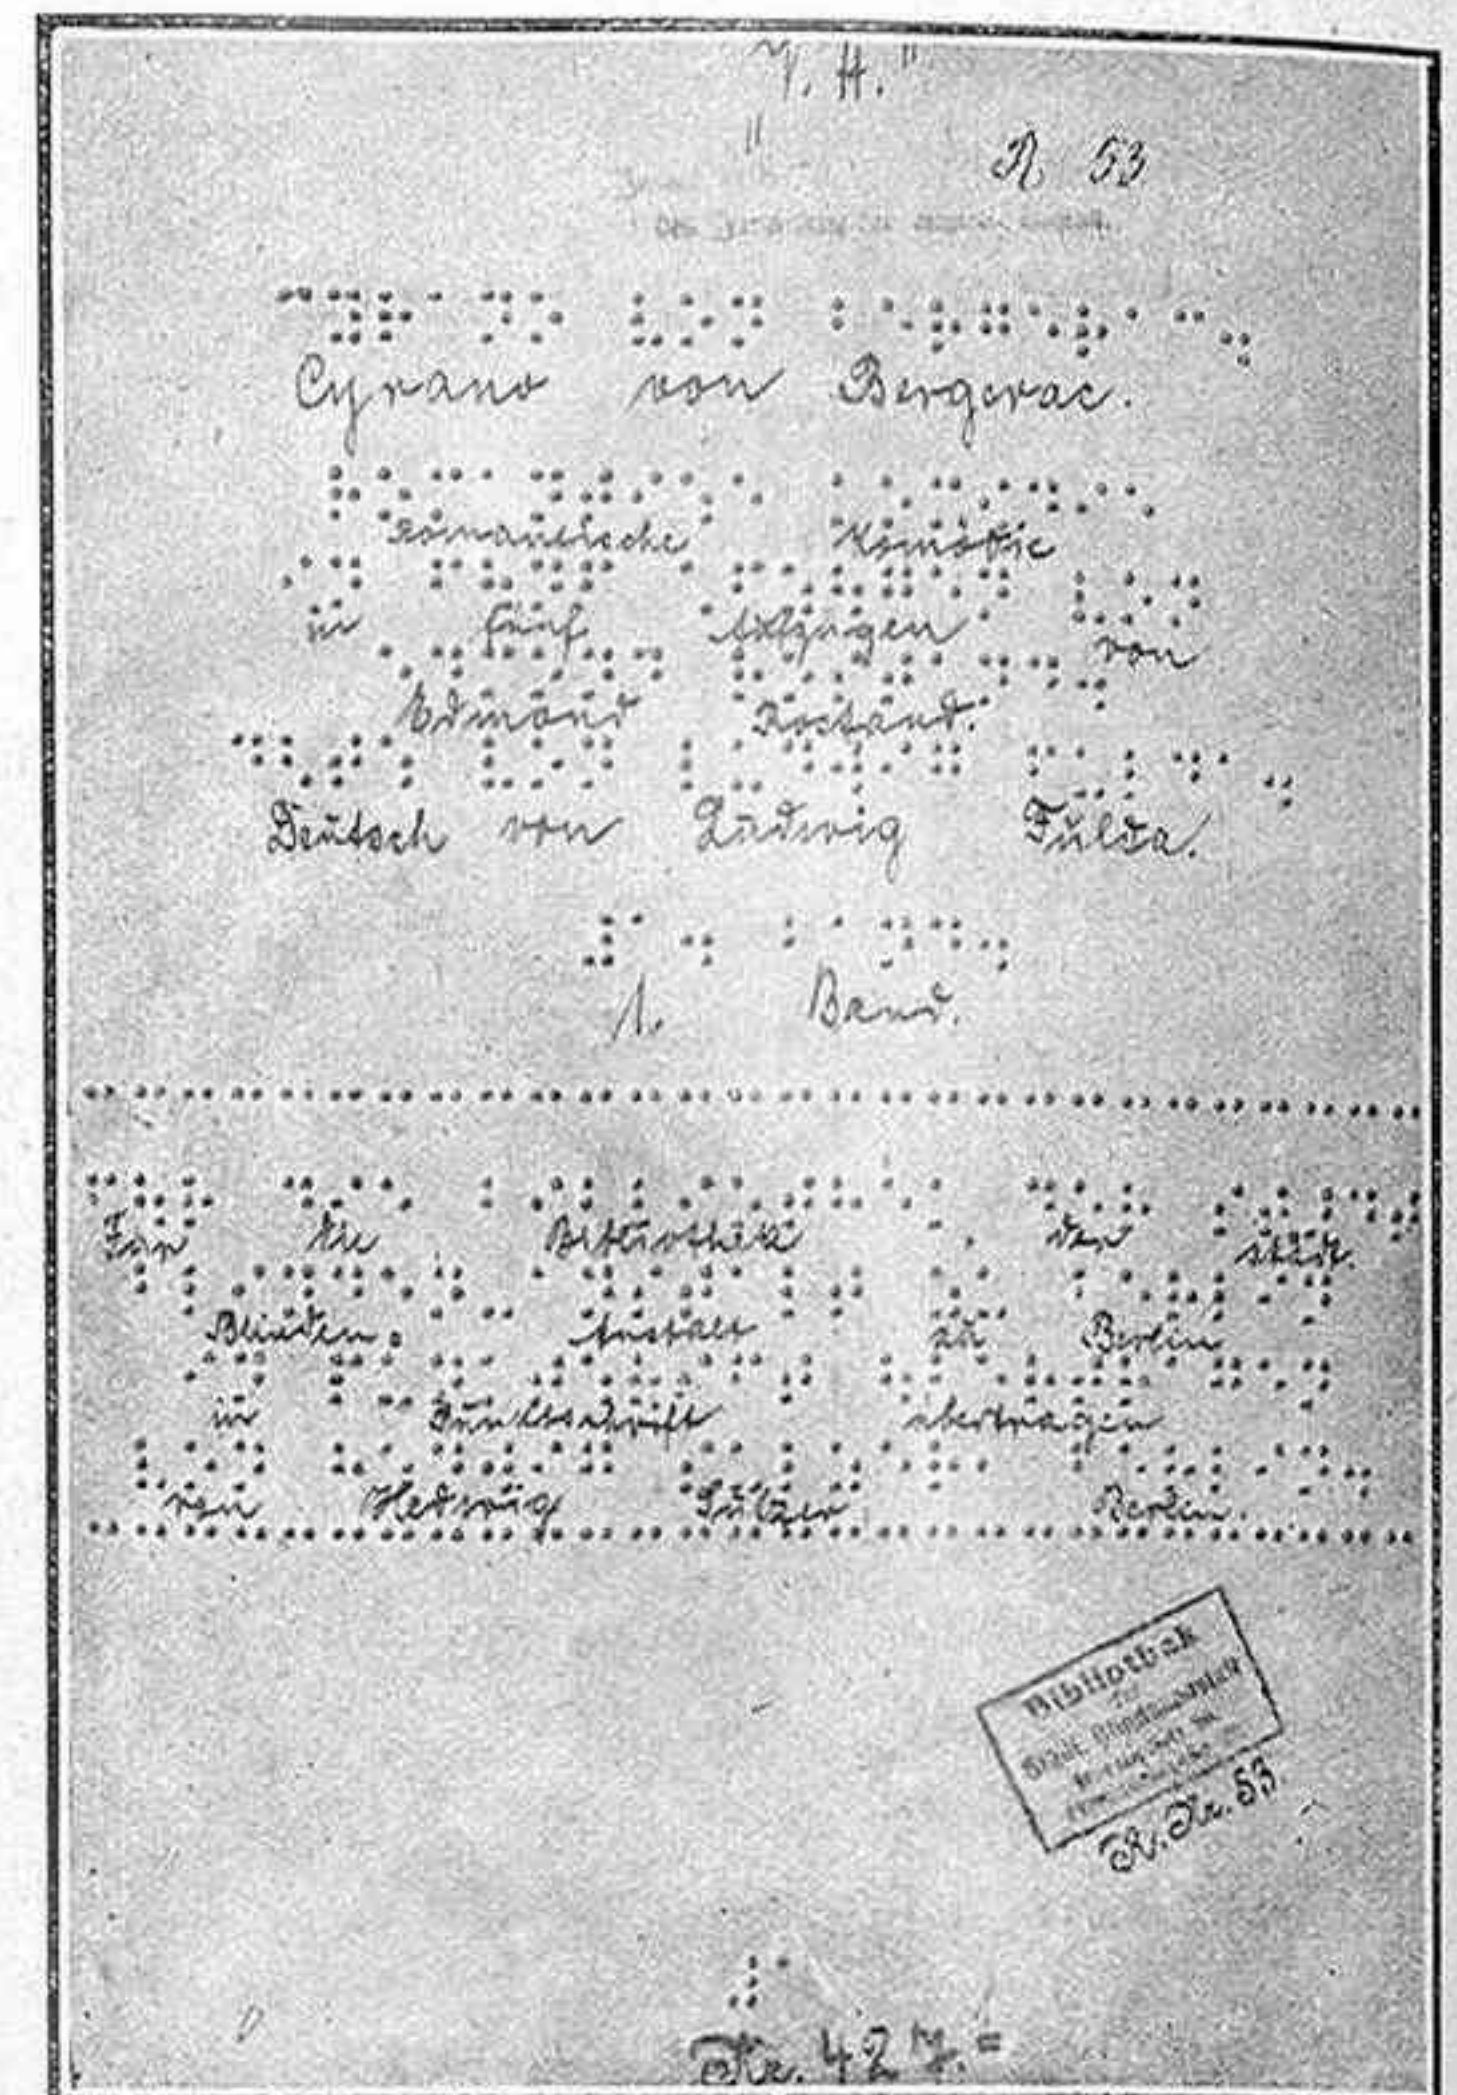 "V. H."
R 53
Cyrano von Bergerac.
Romantische Komödie
in fünf Aufzügen von
Edmond Rostand.
Deutsch von Ludwig Fulda.
1. Band.
Für die Bibliothek der städt.
Blinden- Anstalt zu Berlin
in Punktschrift übertragen
von Hedwig Sulzer Berlin.
Bibliothek
der
Städt. Blindenanstalt
R. Nr. 53
Nr. 427.=